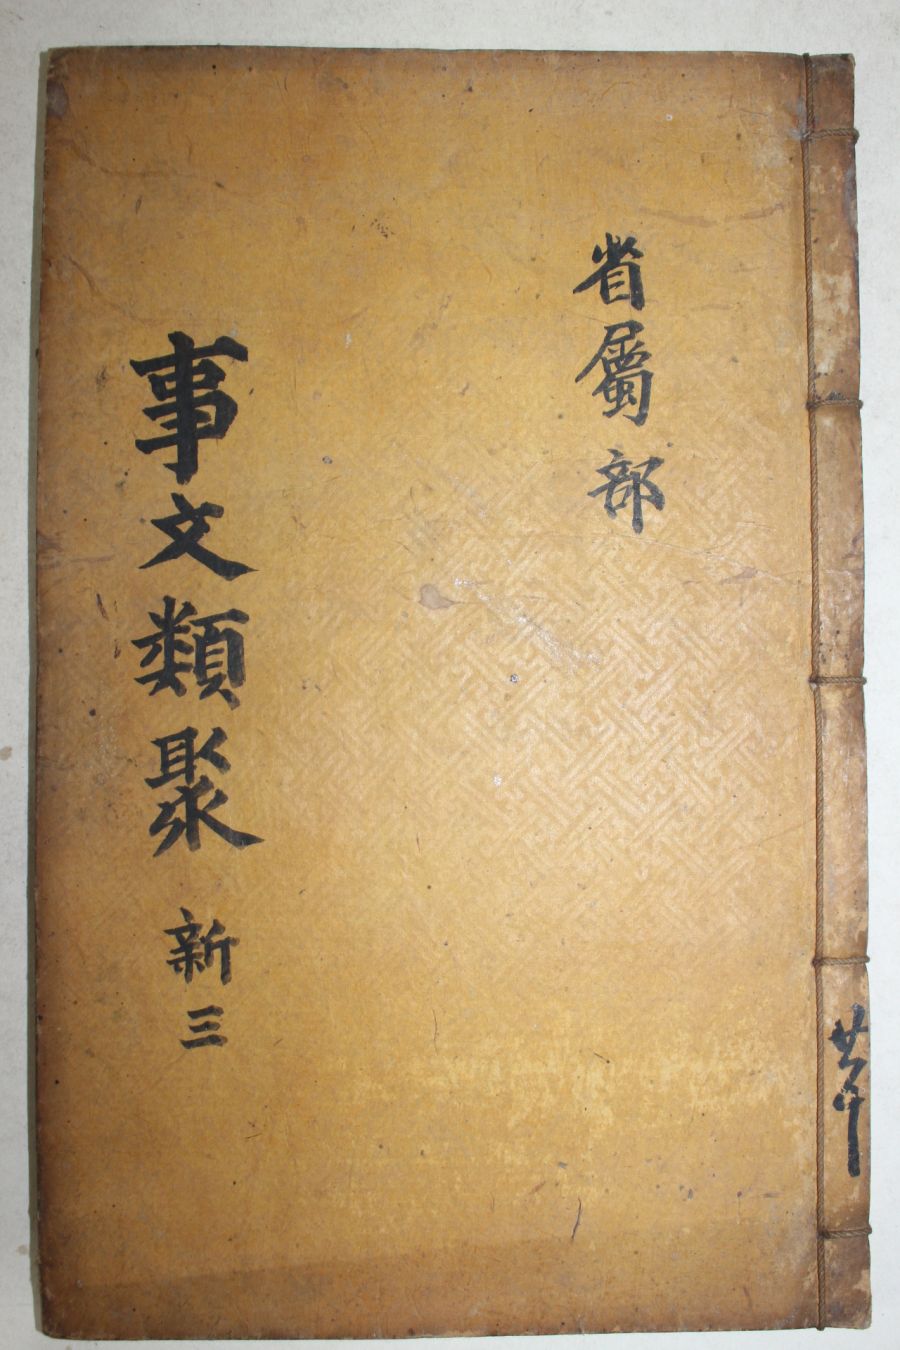 省屬部
事文類聚 新三